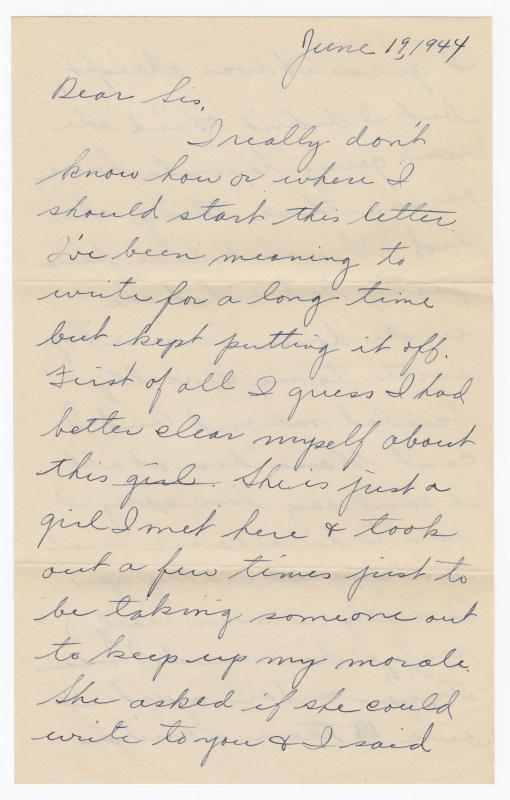 June 19, 1944
Dear Sis,
I really don't
know how or where I
should start this letter.
I've been meaning to
write for a long time
but kept putting it off.
First of all I guess I had
better clear myself about
this girl. She is just a
girl I met here & took
out a few times just to
be taking someone out
to keep up my morale.
She asked if she could
write to you & I said